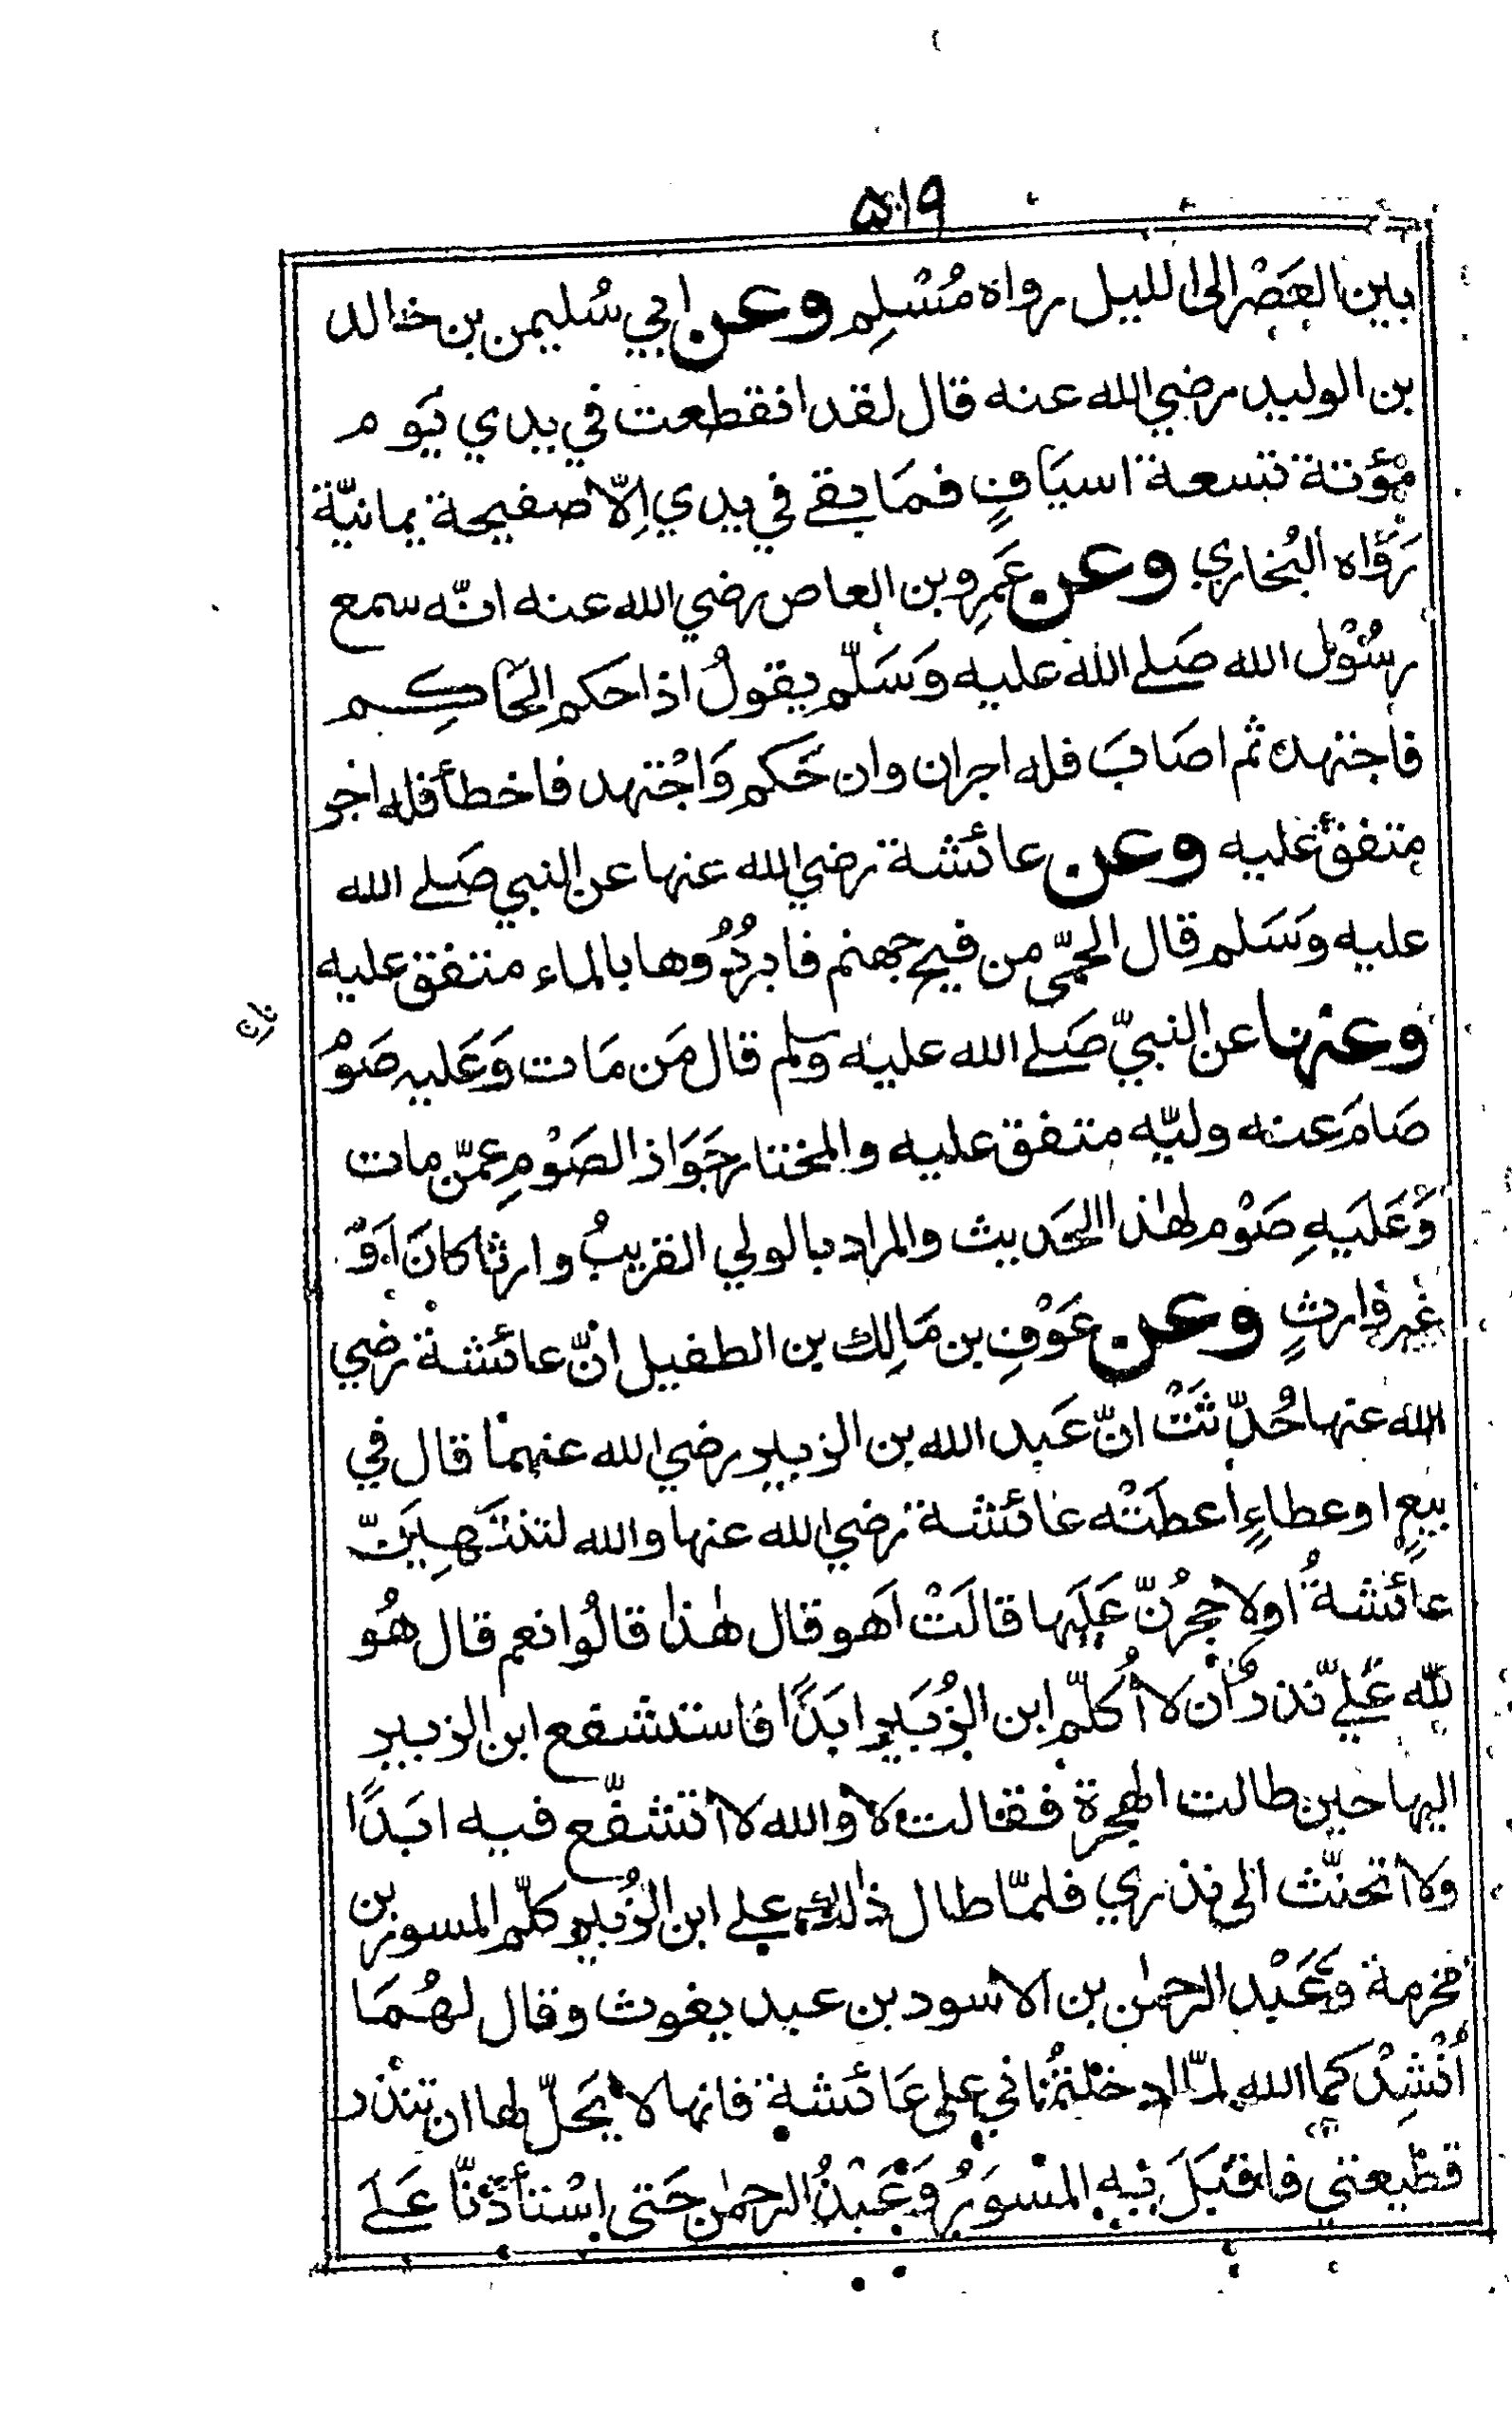 ٥١٩
بين العَصْر الى الليل رواه مُسْلِم وعن ابي سُليمن بن خالد
بن الوليد رضي الله عنه قال لقد انقطعت في يدي يَوم
مؤتة تسعة اسيَافٍ فمَا بقے في يدي اِلّا صفيحة يمانيّة
رَوَاه البُخاري وعن عَمرِو بن العاص رضي الله عنه انّه سمع
رسُوْل الله صَلے الله عليه وَسَلّم يقولُ اذا حكم الحَاكِم
فاجتهد ثم اصَابَ فله اجران وان حَكم وَاجْتهد فاخطأ فله اجر
متفق عليه وعن عائشة رضي الله عنها عن النبي صَلے الله
عليه وسَلم قال الحمّى من فيح جهنم فابردُوها بالماء متفق عليه
وعنها عن النبيّ صَلے الله عليه وسلم قال مَن مَات وَعَليه صَوْم
صَامَ عنه وليّه متفق عليه والمختار جَوَاز الصَوْمِ عمّن مات
وَعَلَيهِ صَوْم لهٰذا الحَديث والمراد بالولي القريبُ وارثا كانَ اَوْ
غير وارثٍ وعن عَوْفِ بن مَالِك بن الطفيل انّ عائشة رضي
الله عنها حُدّثَتْ انّ عَبد الله بن الزبير رضي الله عنهما قال في
بيعٍ او عطاءٍ اعطَتْه عائشة رضي الله عنها والله لتنتَهِيَنّ
عائشةُ اولاحجرُنّ عَلَيها قالَتْ اَهو قال هٰذا قالُوا نعم قال هُو
للّه عَليّ نذر أن لا أُكلّم ابن الزُبَير ابَدًا فاستشفع ابن الزبير
اليها حين طالت الهجرة فقالت لا والله لا أتشفّع فيه ابَدًا
ولا اتحنّث الى نذري فلمّا طال ذٰلك علے ابن الزُبير كلّم المسور بن
مخرمة وعَبْد الرحمٰن بن الاسود بن عبد يغوث وقال لهُمَا
أنْشِدُكما الله لمّا ادخلتُمَاني على عَائشة فانها لا يَحلّ لها ان تنذر
قطيعتي فاقبَلَ بِه المسوَرُ وَعَبْدُ الرحمٰن حَتى اسْتأذنَا عَلَے